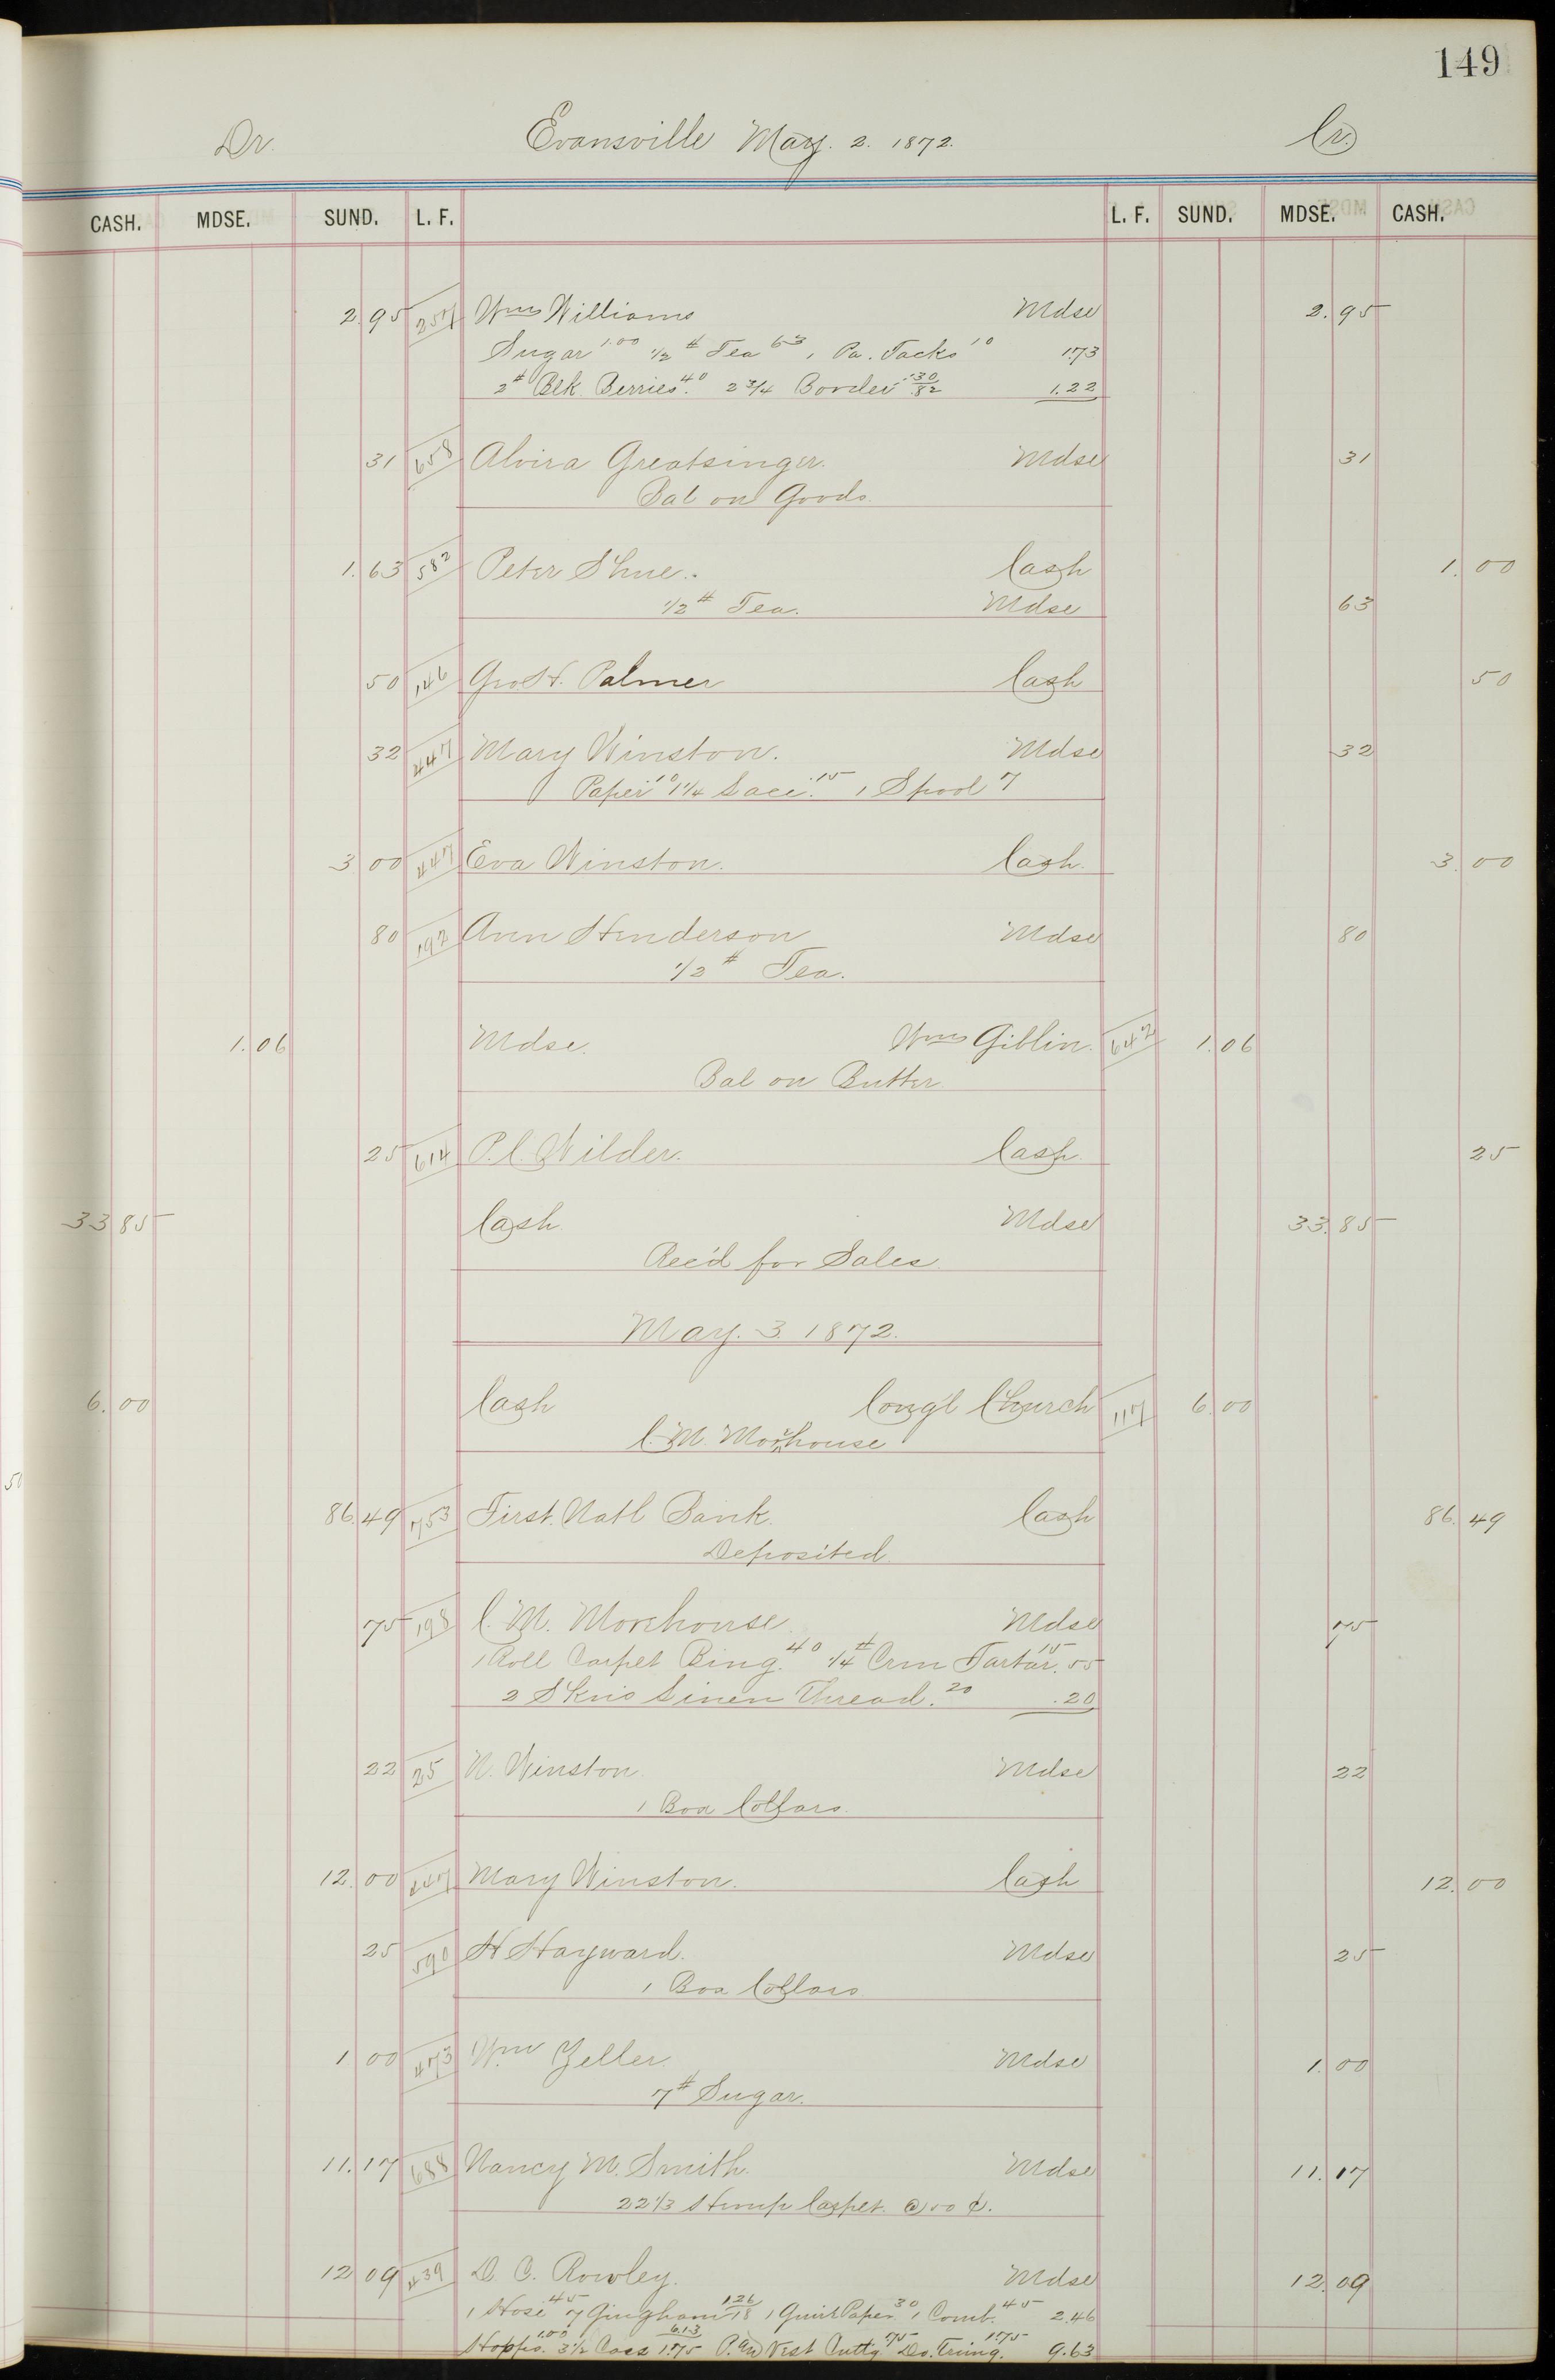 149
Dr. Evansville May. 2. 1872. Cr.
CASH. MDSE. SUND. L. F. L. F. SUND. MDSE. CASH.
2.95 257 Wms Williams Mdse 2.95
Sugar 1.00 1/2 # Tea 63 1 Pa. Tacks 10 1.73
2 # Blk. Berries. 40 2 3/4 Border .30 82 1.22
31 658 Alvira Greatsinger. Mdse 31
Bal on Goods.
1.63 582 Peter Shue. Cash 1.00
1/2 # Tea. Mdse 63
50 146 Geo H. Palmer Cash 50
32 447 Mary Winston. Mdse 32
Paper 10 1 1/4 Lace. .15 1 Spool 7
3 00 447 Eva Winston. Cash. 3.00
80 192 Ann Henderson Mdse 80
1/2 # Tea.
1.06 Mdse. Wms Giblin. 642 1.06
Bal on Butter.
25 614 P.C. Wilder. Cash. 25
33 85 Cash Mdse 33.85
Rec'd for Sales.
May. 3. 1872.
6.00 Cash Cong'l Church 117 6.00
C. M. Morehouse
86.49 753 First. Natl Bank. Cash 86.49
Deposited.
75 198 C. M. Morehouse. Mdse 75
1 Roll Carpet Bing. 40 1/4 # Crm Tartar. 15 .55
2 Skns Linen Thread. 20 .20
22 25 N. Winston. Mdse 22
1 Box Collars.
12.00 447 Mary Winston. Cash 12.00
25 590 H Hayward. Mdse 25
1 Box Collars
1 00 473 Wm Zeller. Mdse 1.00
7 # Sugar.
11.17 688 Nancy M. Smith. Mdse 11.17
22 1/3 Hemp Carpet. @ 50 ¢.
12 09 439 D. C. Rowley. Mdse 12.09
1 Hose 45 7 Gingham 1.26 18 1 Quir Paper 30 1 Comb. 45 2.46
1.00 3 1/2 Cass 6.13 1.75 P. and Vest Cuttg. 75 Do. Triming. 1.75 9.63